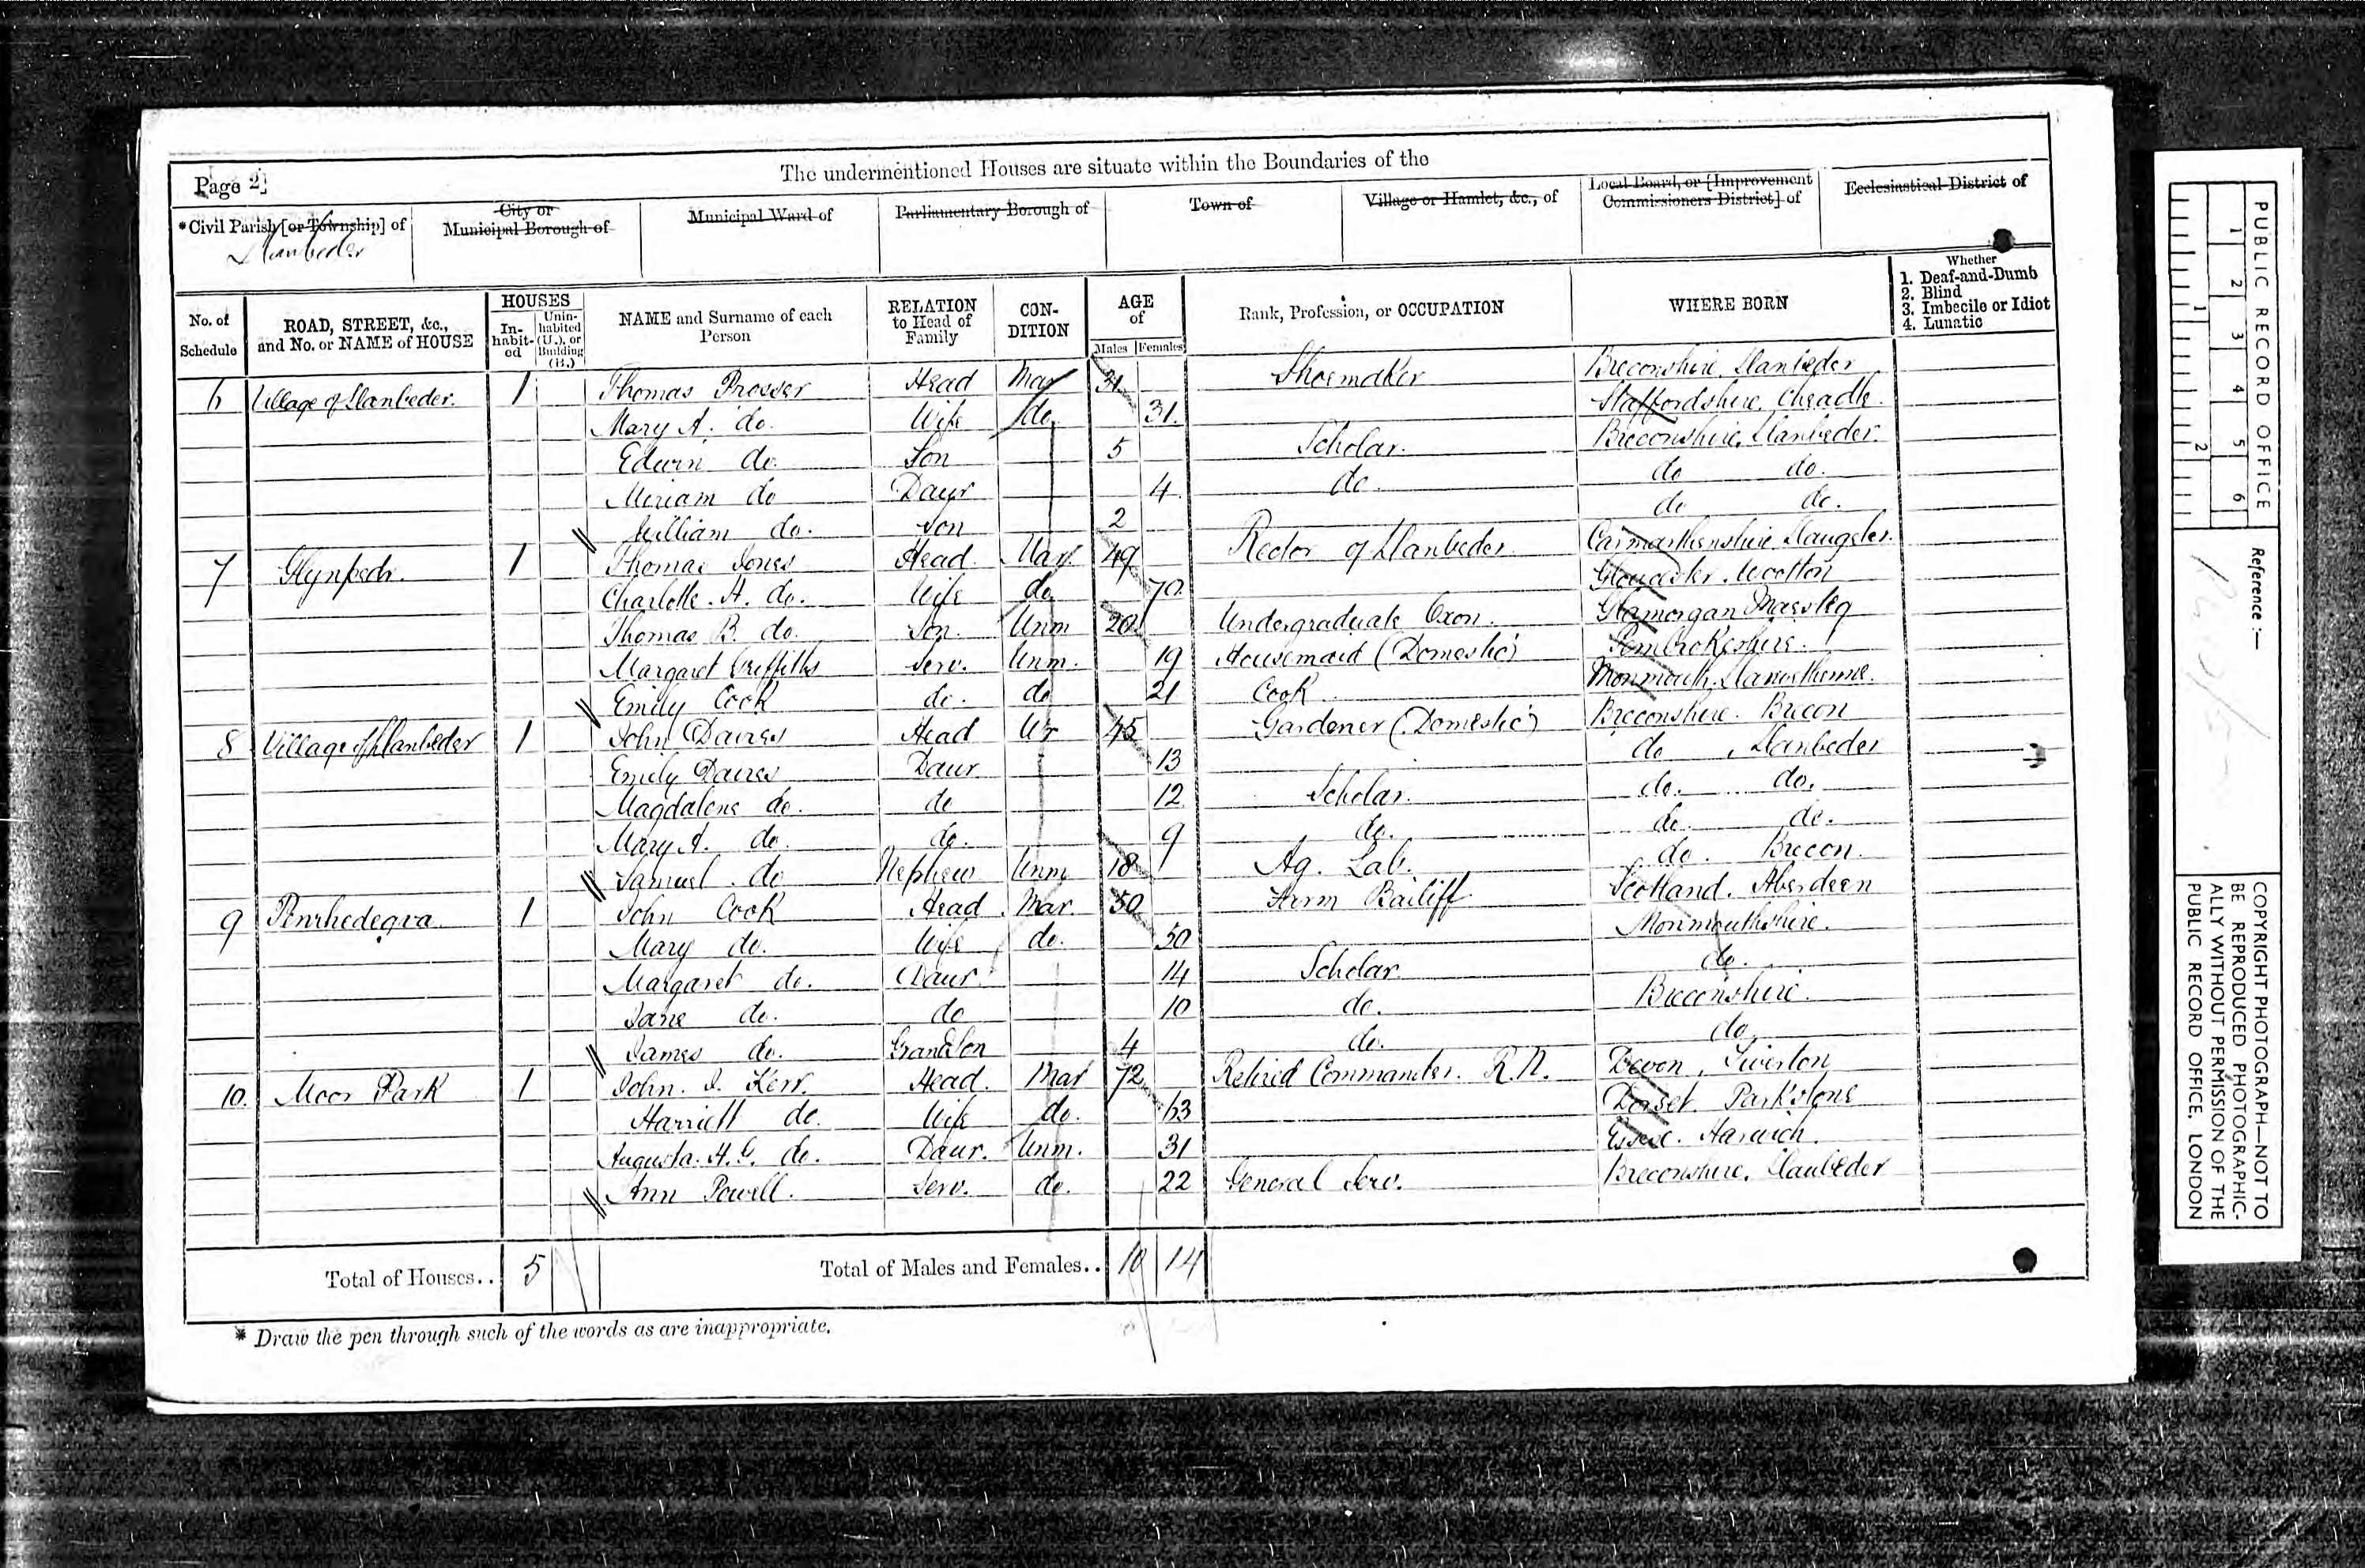 The undermentioned Houses are situate within the Boundaries of the
Page 2]
*Civil Parish [or Township] of
Llanbeder
City or
Municipal Borough of
Municipal Ward of
Parliamentary Borough of
Town of
Village or Hamlet, &c., of
Local Board, or [Improvement
Commissioners District] of
Ecclesiastical District of
No. of
Schedule
ROAD, STREET, &c.,
and No. or NAME of HOUSE
HOUSES
In-
habit-
ed
Unin-
habited
(U.), or
Building
(B.)
NAME and Surname of each
Person
RELATION
to Head of
Family
CON-
DITION
AGE
of
Males Females
Rank, Profession, or OCCUPATION
WHERE BORN
Whether
1. Deaf-and-Dumb
2. Blind
3. Imbecile or Idiot
4. Lunatic
6 Village of Llanbeder. 1 Thomas Prosser Head Mar 31 Shoemaker Breconshire, Llanbeder
Mary A. do. Wife do. 31. Staffordshire, Cheadle.
Edwin do. Son 5 Scholar. Breconshire, Llanbeder.
Miriam do Daur 4 do. do do.
William do. Son 2 do do.
7 Glynpedr. 1 Thomas Jones Head. Mar. 49 Rector of Llanbeder. Carmarthenshire, Llangeler.
Charlotte. A. do. Wife do. 70. Gloucester. Wootton
Thomas B. do. Son. Unm 20. Undergraduate Oxon. Glamorgan Maesteg
Margaret Griffiths Serv. Unm. 19 Housemaid (Domestic) Pembrokeshire.
Emily Cook do. do 21 Cook Monmouth.
8 Village of Llanbeder 1 John Davies Head Wr 45 Gardener (Domestic) Breconshire. Brecon
Emily Davies Daur 13 do, Llanbeder
Magdalene do. do 12 Scholar. do. do.
Mary A. do. do. 9 do. do. do.
Samuel. do Nephew Unm 18 Ag. Lab. do. Brecon.
9 1 John Cook Head. Mar. 50 Farm Bailiff Scotland. Aberdeen
Mary do. Wife do. 50 Monmouthshire.
Margaret do. Daur. 14 Scholar. do.
Jane do. do 10 do. Breconshire.
James do. Grandson 4 do. do.
10. Moor Park 1 John. J. Kerr. Head. Mar 72 Retired Commander. R.N. Devon, Tiverton
Harriett do. Wife do. 63 Dorset. Parkstone
Augusta. H. G. do. Daur. Unm. 31 Essex. Harwich.
Ann Powell. Serv. do. 22 General Serv. Breconshire, Llanbeder
Total of Houses.. 5 Total of Males and Females.. 10 14
* Draw the pen through such of the words as are inappropriate.
PUBLIC RECORD OFFICE
1 2 3 4 5 6
1 2
Reference :—
COPYRIGHT PHOTOGRAPH—NOT TO
BE REPRODUCED PHOTOGRAPHIC-
ALLY WITHOUT PERMISSION OF THE
PUBLIC RECORD OFFICE, LONDON